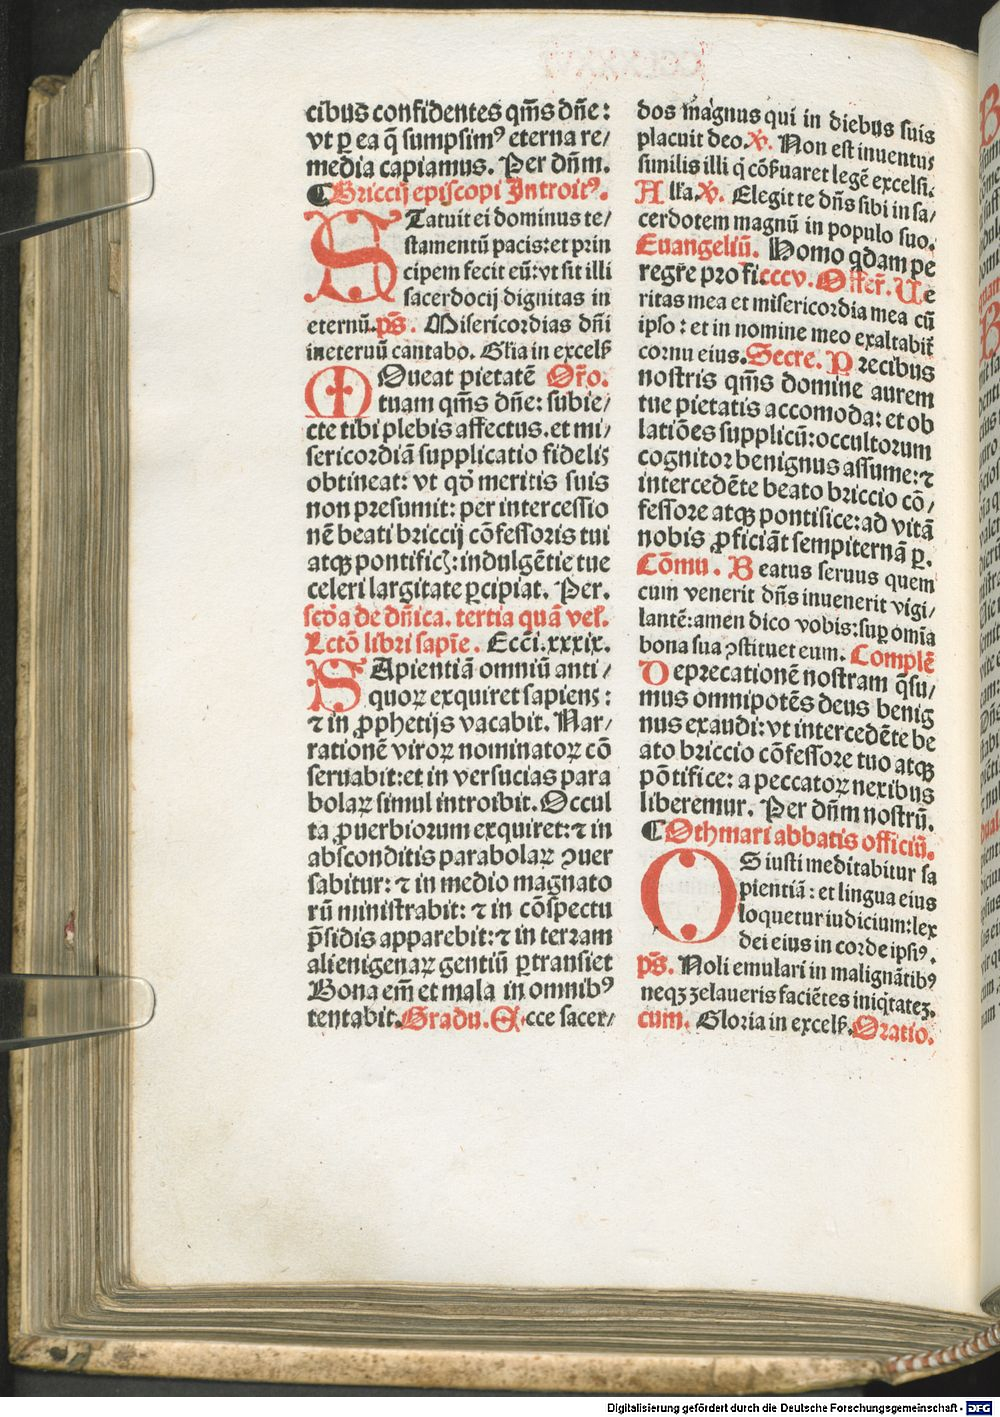 cibus confidentes qm̃s dñe:
vt ꝑ ea q̃ sumpsimꝰ eterna re⸗
media capiamus. Per dñm.
Briccij episcopi Introitꝰ.
STatuit ei dominus te⸗
stamentũ pacis: et prin
cipem fecit eũ: vt sit illi
sacerdocij dignitas in
eternũ. ps̃. Misericordias dñi
in eternũ cantabo. Glia in excelß
MOueat pietatẽ Or̃o.
tuam qm̃s dñe: subie⸗
cte tibi plebis affectus. et mi⸗
sericordiã supplicatio fidelis
obtineat: vt qď meritis suis
non presumit: per intercessio
nẽ beati briccij cõfessoris tui
atqꝫ pontificis: indulgẽtie tue
celeri largitate ꝑcipiat. Per.
scďa de dñica. tertia quã vel.
Lctõ libri sapĩe. Ecc̃i. xxxix.
SApientiã omniũ anti⸗
quoꝝ exquiret sapiens:
⁊ in ꝓphetijs vacabit. Nar⸗
rationẽ viroꝝ nominatoꝝ cõ
seruabit: et in versucias para
bolaꝝ simul introibit. Occul
ta ꝓuerbiorum exquiret: ⁊ in
absconditis parabolaꝝ ꝯuer
sabitur: ⁊ in medio magnato
rũ ministrabit: ⁊ in cõspectu
p̃sidis apparebit: ⁊ in terram
alienigenaꝝ gentiũ ꝑtransiet
Bona em̃ et mala in omnibꝰ
tentabit. Gradu. Ecce sacer⸗
dos magnus qui in diebus suis
placuit deo. ꝟ. Non est inuentus
similis illi q̇ cõẜuaret legẽ excelsi.
Alła. ꝟ. Elegit te dñs sibi in sa⸗
cerdotem magnũ in populo suo.
Euangeliũ. Homo qdam pe
regr̃e profi. cccv. Offer̃. Ue
ritas mea et misericordia mea cũ
ipso: et in nomine meo exaltabiť
cornu eius. Secre. Precibus
nostris qm̃s domine aurem
tue pietatis accomoda: et ob
latiões supplicũ: occultorum
cognitor benignus assume: ⁊
intercedẽte beato briccio cõ⸗
fessore atqꝫ pontifice: ad vitã
nobis ꝓficiãt sempiternã ꝑ.
Cõmu. Beatus seruus quem
cum venerit dñs inuenerit vigi⸗
lantẽ: amen dico vobis: suꝑ omĩa
bona sua ꝯstituet eum. Complẽ
Deprecationẽ nostram q̃su⸗
mus omnipotẽs deus benig
nus exaudi: vt intercedẽte be
ato briccio cõfessore tuo atqꝫ
põtifice: a peccatoꝝ nexibus
liberemur. Per dñm nostrũ.
Othmari abbatis officiũ.
OS iusti meditabitur sa
pientiã: et lingua eius
loquetur iudicium: lex
dei eius in corde ipsiꝰ.
ps̃. Noli emulari in malignãtibꝰ
neqꝫ zelaueris faciẽtes iniq̇tateꝫ.
cum. Gloria in excelß. Oratio.
Digitalisierung gefördert durch die Deutsche Forschungsgemeinschaft - DFG